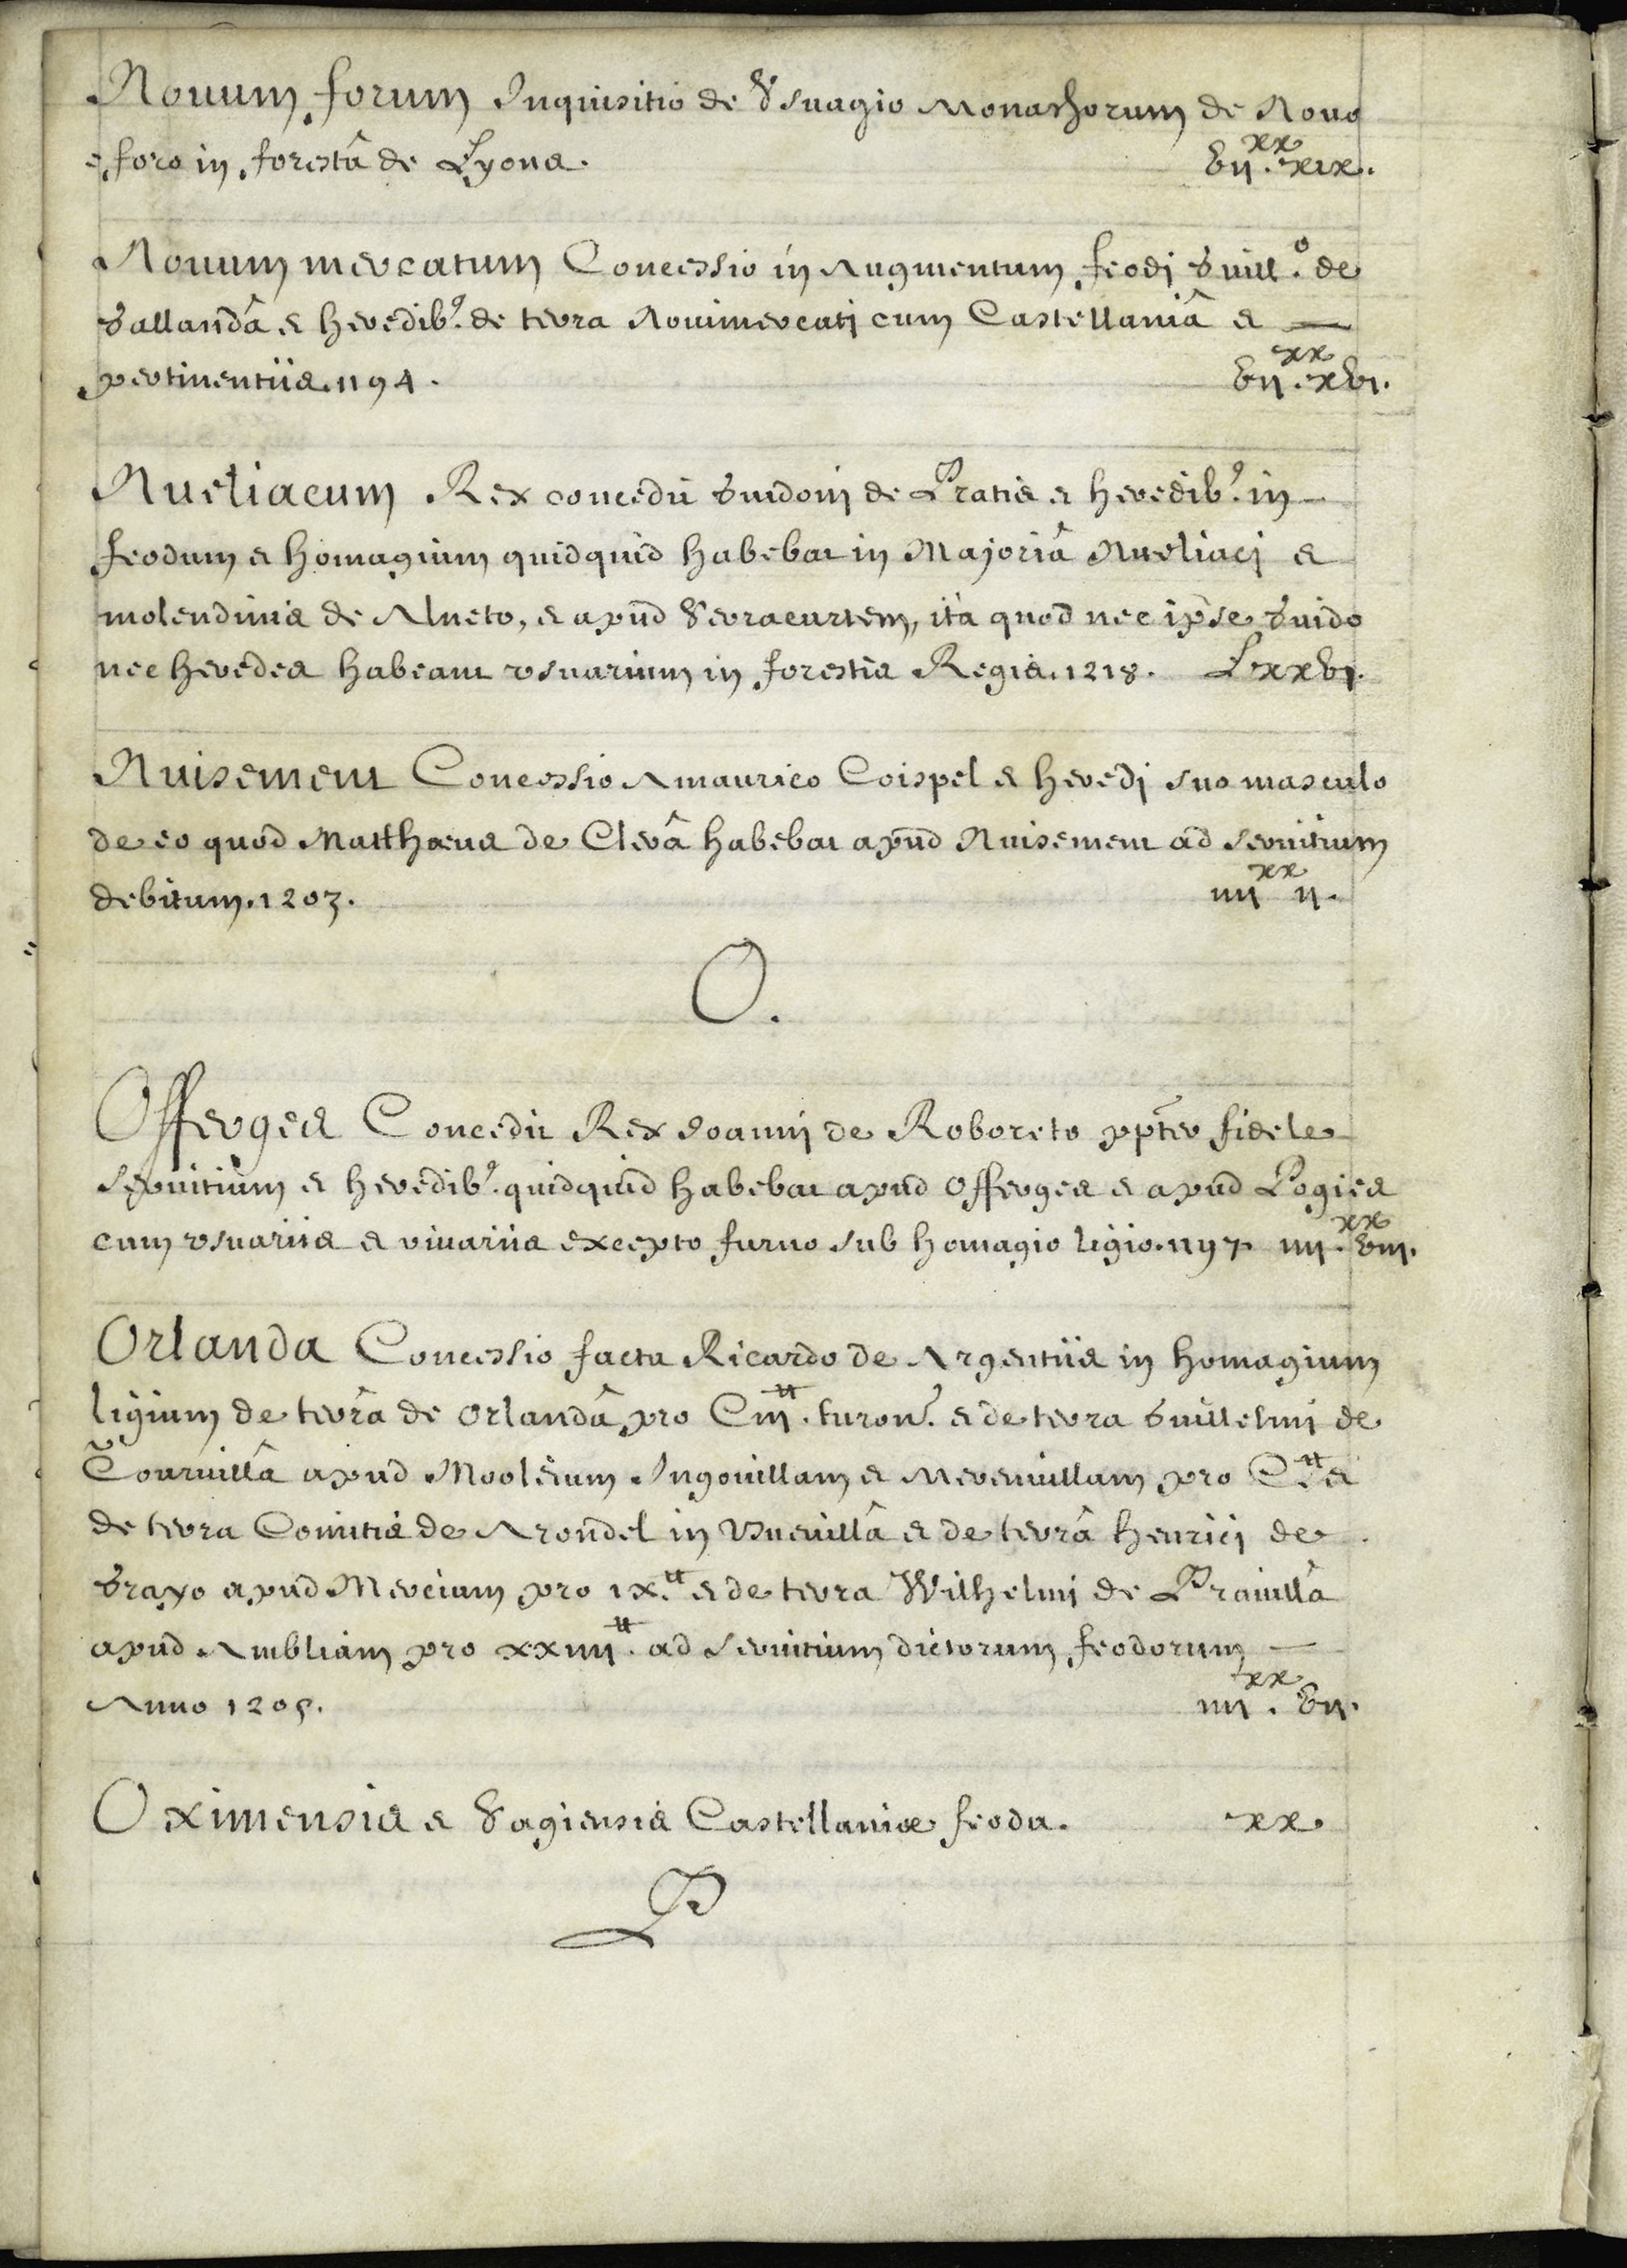 Nouum forum Inquisitio de Vsuagio Monachorum de Nouo
foro in forestâ de Lyons. vii.xx xix.
Nouum mercatum Concessio in Augmentum feodi Guill.º de
Gallandâ & heredib9. de terra Nouimercati cum Castellaniâ & —
pertinentiis. 1194. vii.xx xvi.
Nueliacum Rex concedit Guidoni de Pratis & heredib9. in —
feodum & homagium quidquid habebat in Majoriâ Nueliaci &
molendinis de Alneto, & apud Serracurtem, ita quod nec ipse Guido
nec heredes habeant vsuarium in forestis Regis. 1218. Lxxvi.
Nuisement Concessio Amaurico Coispel & heredi suo masculo
de eo quod Matthæus de Clerâ habebat apud Nuisement ad seruitium
debitum. 1203. iiii xx ii.
O.
Offerges Concedit Rex Joanni de Roboreto ppter fidele
seruitium & heredib9. quidquid habebat apud Offerges & apud Logies
cum vsuariis & viuariis excepto furno sub homagio ligio. 1197. iiii.xx viii.
Orlanda Concessio facta Ricardo de Argentiis in homagium
ligium de terrâ de Orlandâ pro Ciii.tt turon. & de terra Guillelmi de
Tournillâ apud Mooleium Ingouillam & Mereuillam pro C.tt &
de terra Comitis de Arondel in Vueuillâ & de terrâ henrici de
Grayo apud Merciam pro ix.tt & de terra Wilhelmi de Prauillâ
apud Ambliam pro xxiiii.tt ad seruitium dictorum feodorum —
Anno 1205. iiii.xx vii.
Oximensis & Sagiensis Castellaniæ feoda. xx.
P